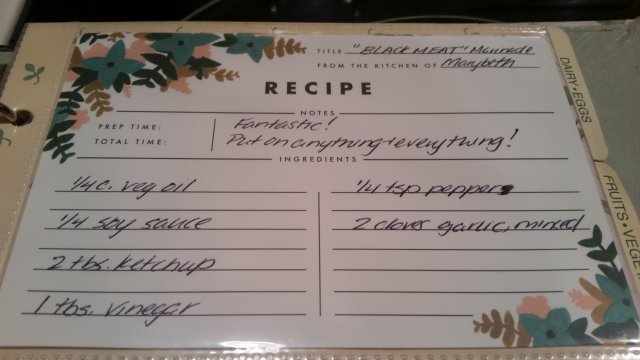 TITLE "BLACK MEAT" Marinade
FROM THE KITCHEN OF Marybeth
RECIPE
NOTES
PREP TIME: Fantastic!
TOTAL TIME: Put on anything + everything!
INGREDIENTS
1/4 c. veg oil
1/4 soy sauce
2 tbs. ketchup
1 tbs. vinegar
1/4 tsp pepper
2 cloves garlic, minced
DAIRY • EGGS
FRUITS • VEGE